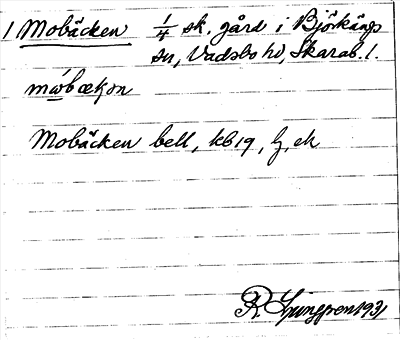 1 Mobäcken 1/4 sk. gård i Björkängs
sn, Vadsbo hd, Skarab. l.
Mobäcken bell, kb 19, h, ek
R. Ljunggren 1931